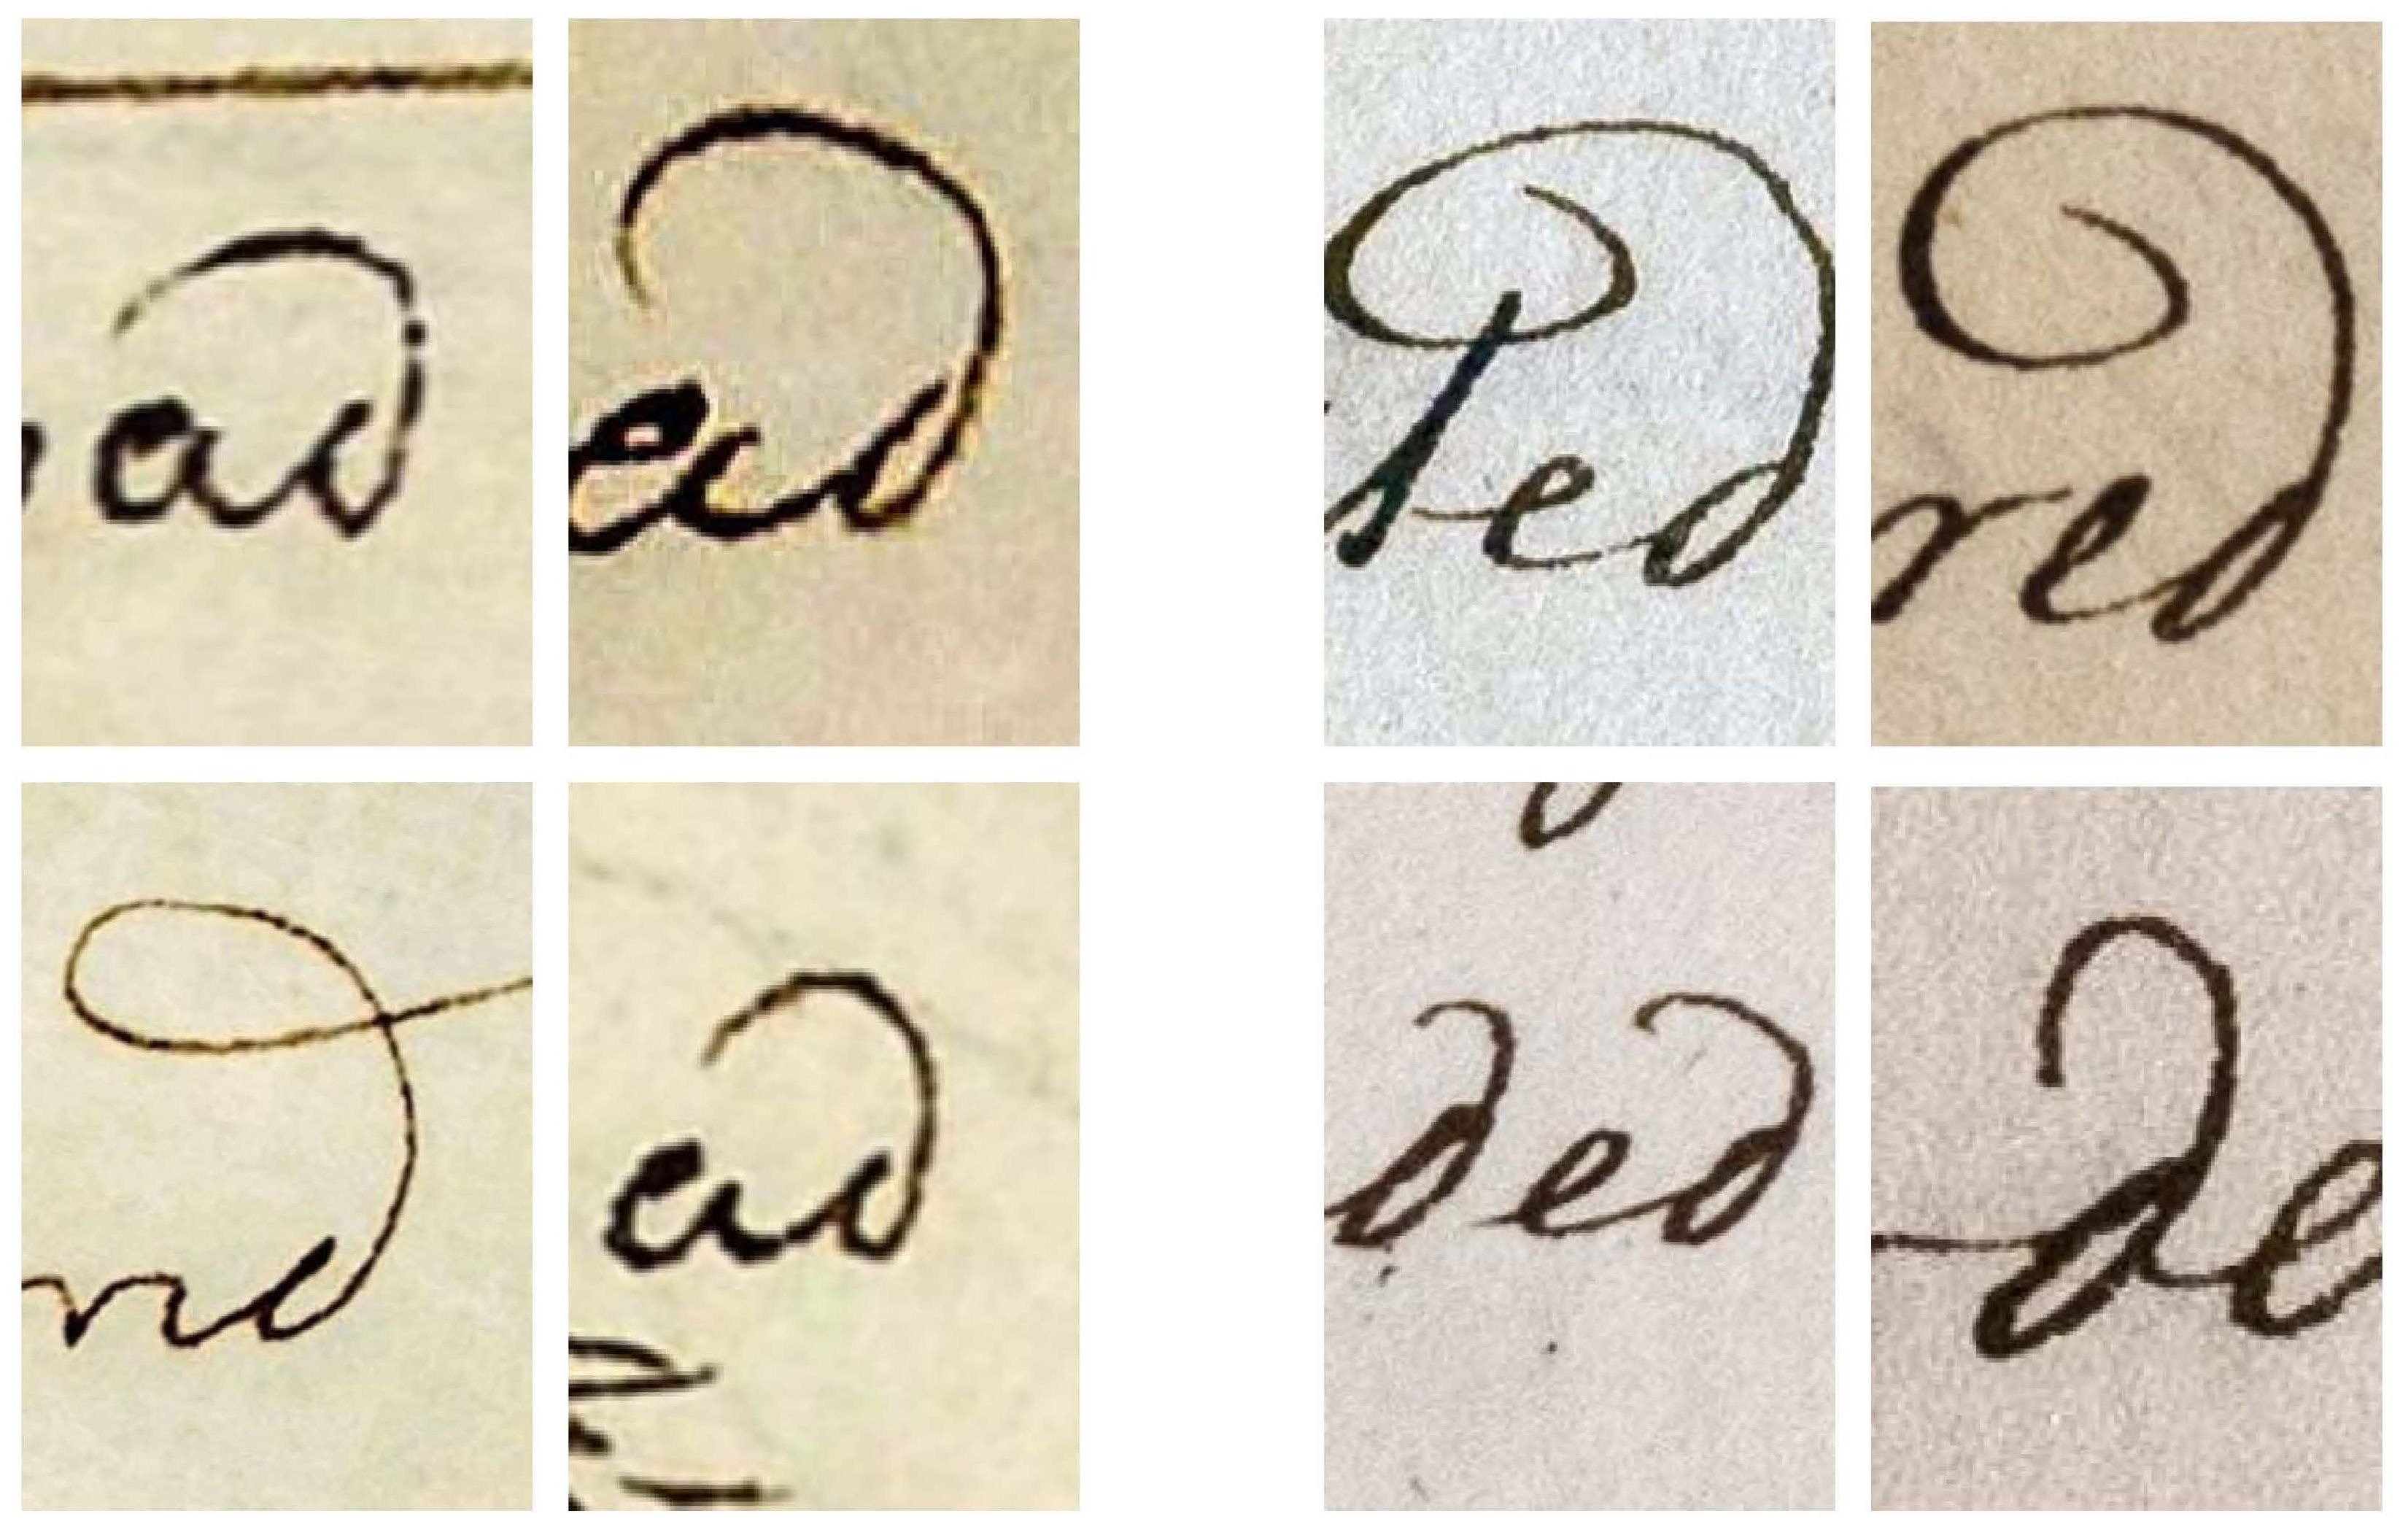 ad ead ted red
nd ad ded de